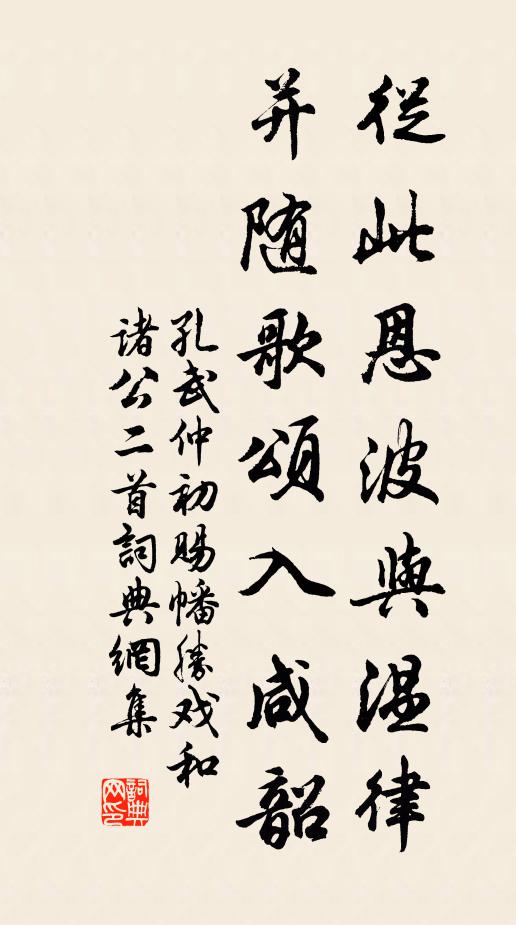 從此恩波與溫律
并随歌頌入咸韶
孔武仲初賜幡勝戏和
諸公二首詞典網集
詞典网印